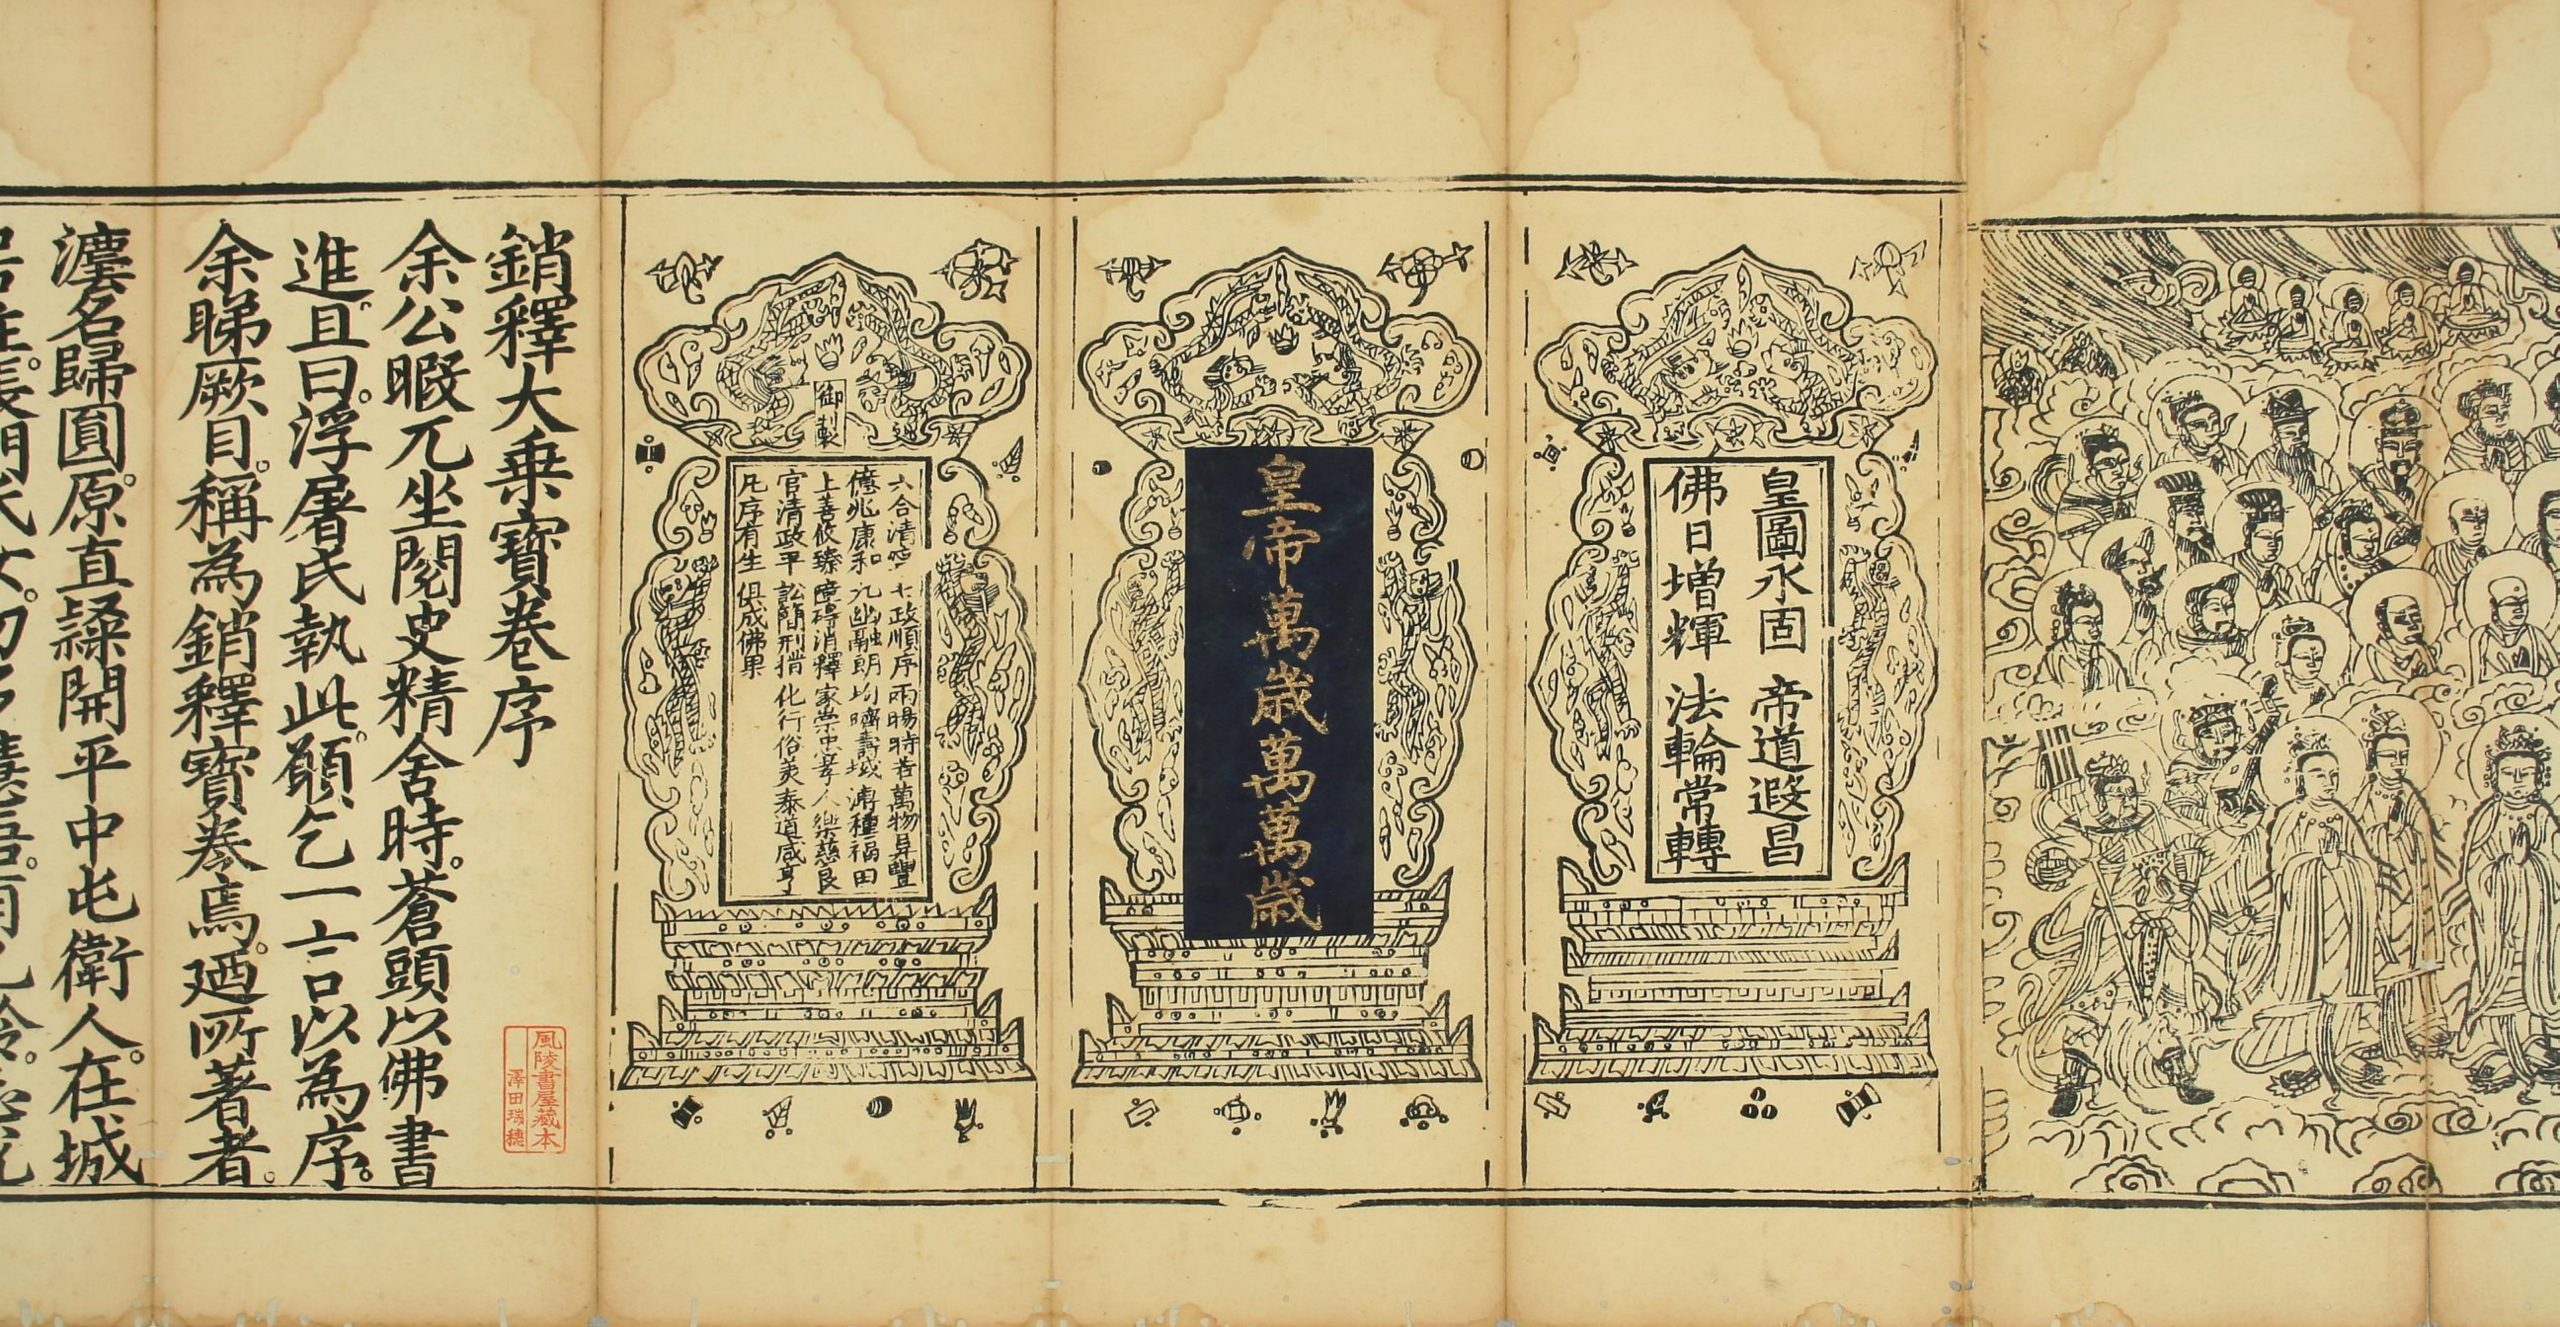 皇圖永固 帝道遐昌
佛日增輝 法輪常轉
皇帝萬歲萬萬歲
御製
六合清寧 七政順序 雨暘時若 萬物阜豐
億兆康和 九幽融朗 均躋壽域 溥種福田
上善攸臻 障碍消釋 家崇忠孝 人樂慈良
官清政平 訟簡刑措 化行俗美 泰道咸亨
凡序有生 俱成佛果
銷釋大乗寳卷序
余公暇兀坐閱史精舍時。蒼頭以佛書
進。且曰。浮屠氏執此。願乞一言以為序。
余睇厥目。稱為銷釋寳卷焉。廼所著者。
瀍名歸圓。原直隸開平中屯衛人。在城
風陵書屋藏本
澤田瑞穂